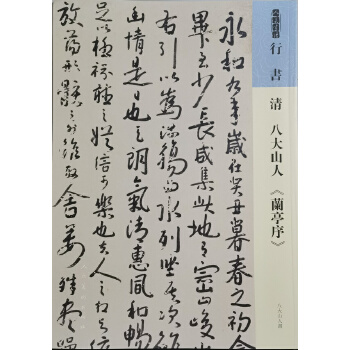 行書
清 八大山人《蘭亭序》
永和九年歲在癸丑暮春之初會
畢至少長咸集此地有崇山峻
右引以為流觴曲水列坐其次
幽情是日也天朗氣清惠風和暢
足以極視聽之娛信可樂也夫人之相與
放蕩形骸之外雖取舍萬殊